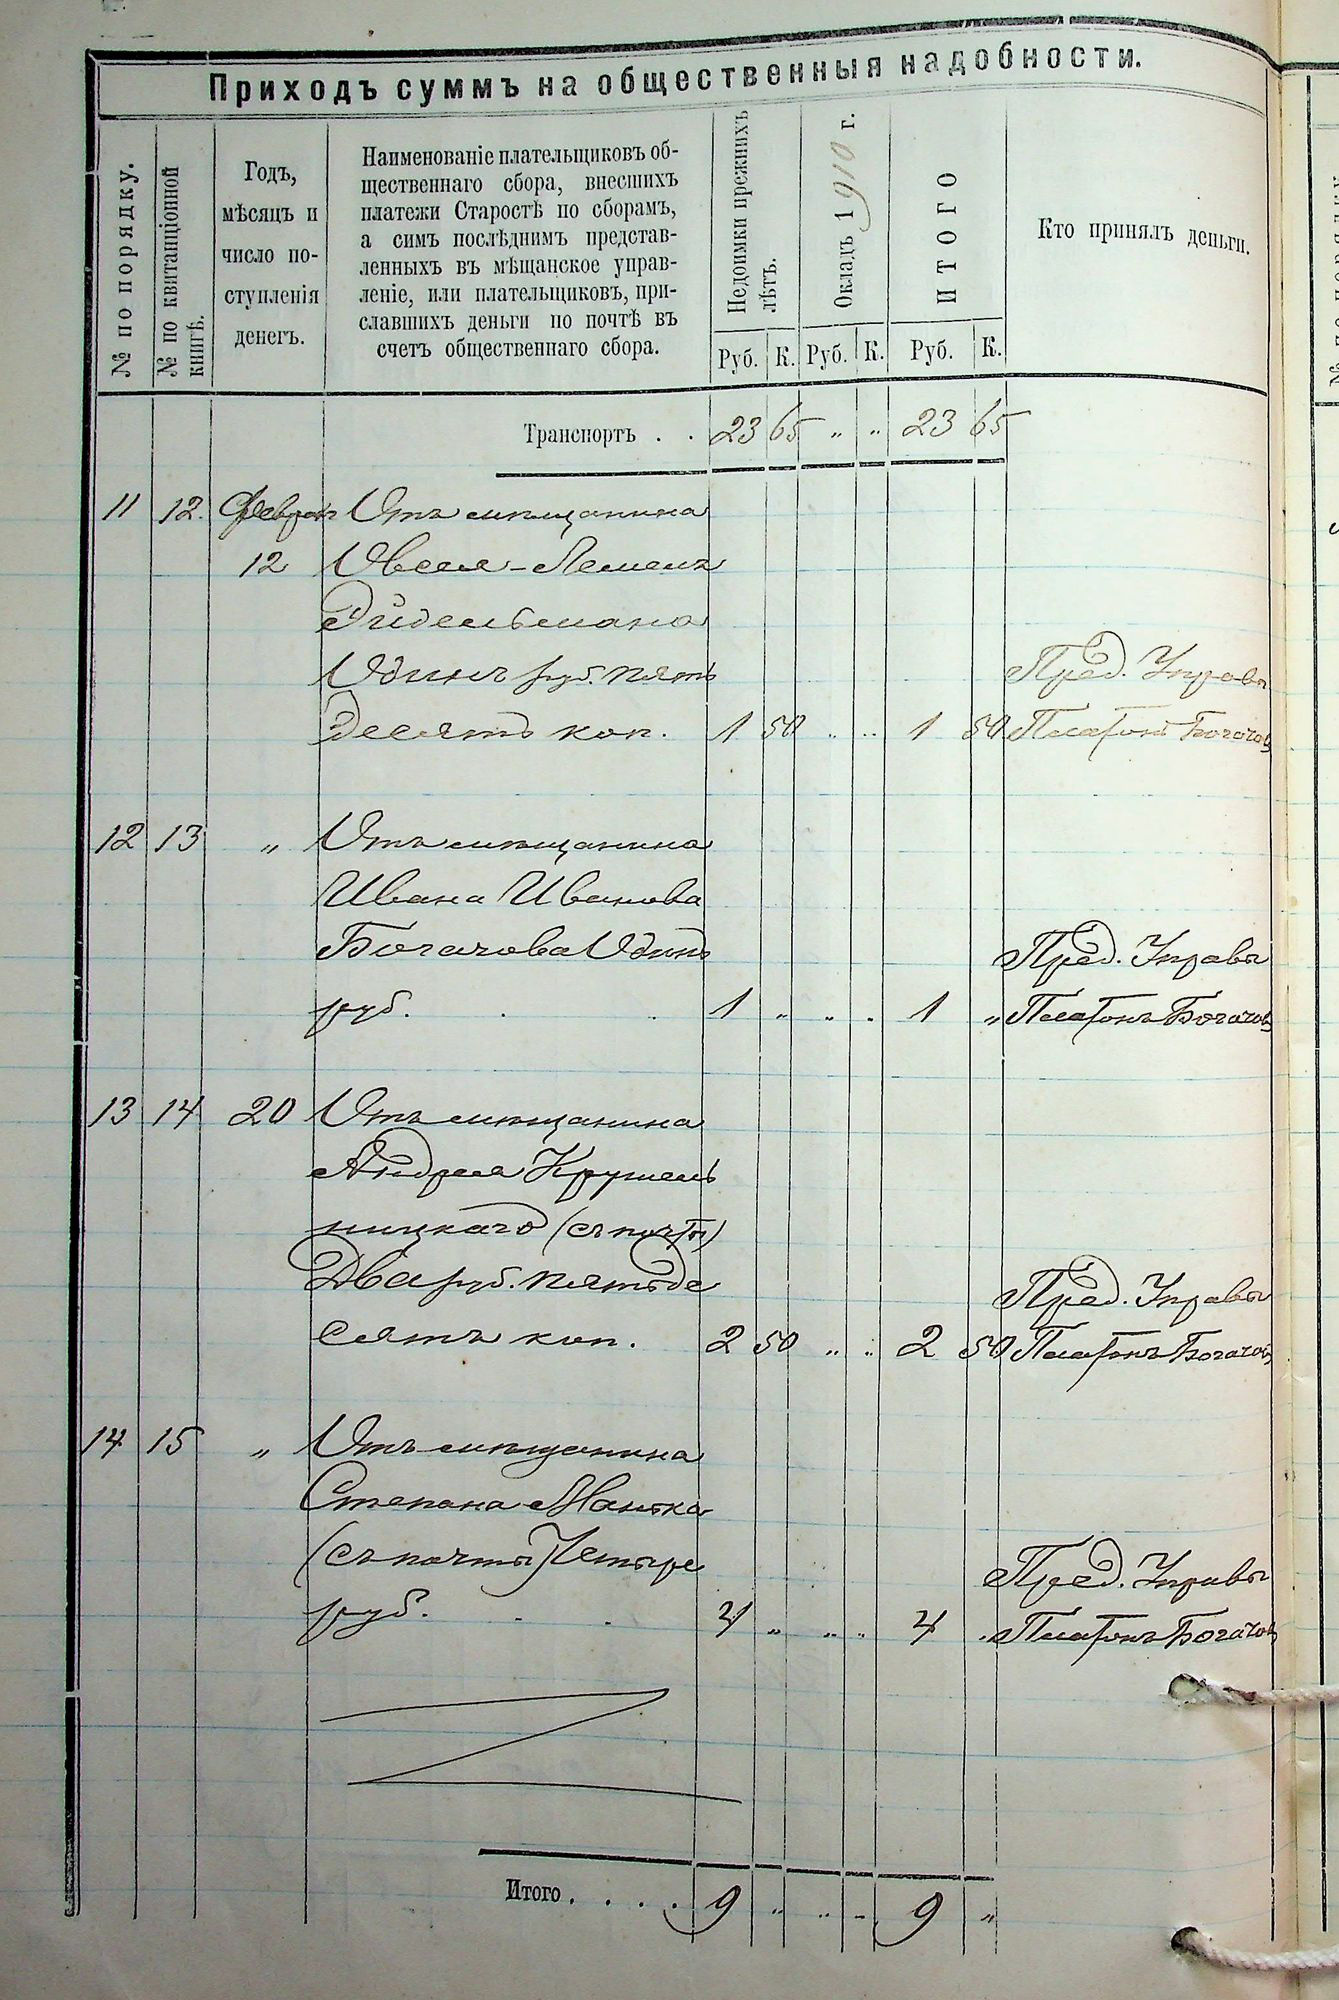 Приходъ суммъ на общественныя надобности.
№ по порядку.
№ по квитанціонной
книгѣ.
Годъ,
мѣсяцъ и
число по-
ступленія
денегъ.
Наименованіе плательщиковъ об-
щественнаго сбора, внесшихъ
платежи Старостѣ по сборамъ,
а симъ послѣднимъ представ-
ленныхъ въ мѣщанское управ-
леніе, или плательщиковъ, при-
славшихъ деньги по почтѣ въ
счетъ общественнаго сбора.
Недоимки прежнихъ
лѣтъ.
Окладъ 1910 г.
ИТОГО
Кто принялъ деньги.
Руб. К. Руб. К. Руб. К.
Транспортъ . . 23 65 „ „ 23 65
11 12. Феврал Отъ мѣщанина
12 Овсея-
Эйдельмана
Одинъ руб. пять Пред. Управы
десятъ коп. 1 50 „ „ 1 50 Платонъ Богачовъ
12 13 „ Отъ мѣщанина
Ивана Иванова
Богачова Одинъ Пред. Управы
руб. . . 1 „ „ „ 1 „ Платонъ Богачовъ
13 14 20 Отъ мѣщанина
Андрея Крушель
ницкаго (съ почты)
Два руб. пятьде Пред. Управы
сятъ коп. 2 50 „ „ 2 50 Платонъ Богачовъ
14 15 „ Отъ мѣщанина
Степана
(съ почты) Четыре Пред. Управы
руб. . . 4 „ „ „ 4 „ Платонъ Богачовъ
Итого . . . . 9 „ „ „ 9 „